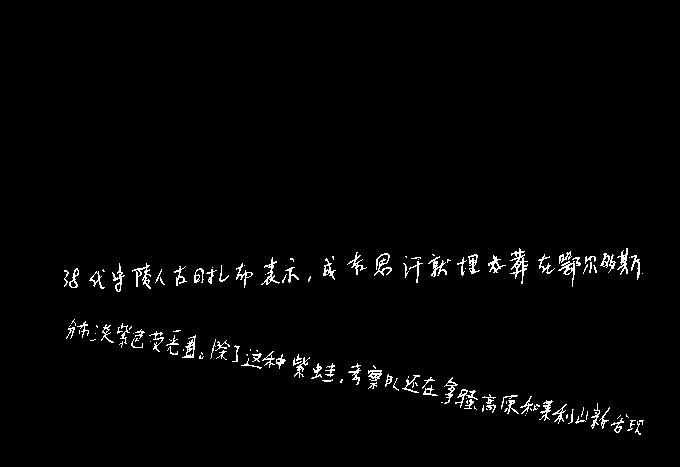 38代守陵人古日扎布表示,成吉思汗就埋葬在鄂尔多斯
分布淡紫色荧光圈。除了这种紫蛙,考察队还在拿骚高原和莱利山新发现